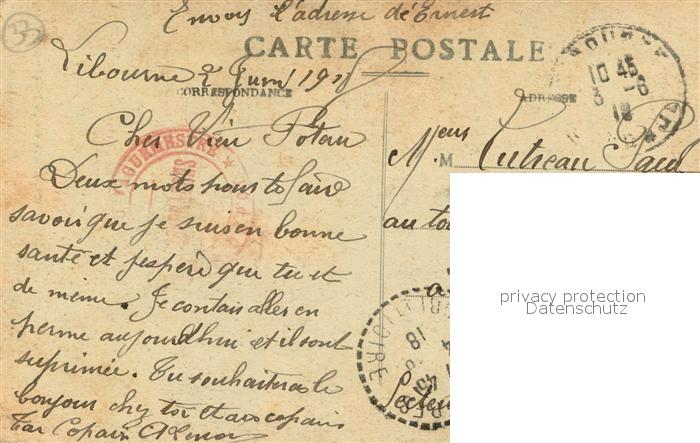 Envois l'adresse de Ernest
CARTE POSTALE
Libourne 2 Juin 1918
CORRESPONDANCE
ADRESSE
Cher Vieu Poteau
Deux mots pour te faire
savoir que je suis en bonne
santé et j'espère que tu et
de meme. Je contais aller en
perme aujourdhui et il sont
suprimée. Tu souhaiteras le
bonjour chez toi et aux copains
Ton Copain
M
Paul
au
10 45
privacy protection
Datenschutz